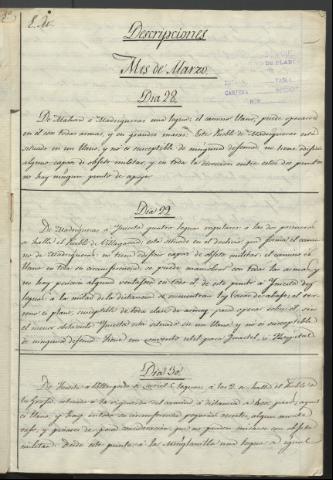 Descripciones
Mes de Marzo.
Dia 28.
De Mahora á Madrigueras una legua: el camino llano, puede operarse
en él con todas armas, y en grandes masas. Este Pueblo de Madrigueras está
situado en un llano, y no es susceptible de ninguna defensa, ni tiene edificio
alguno capaz de objeto militar, y en toda la direccion entre estos dos puntos
no hay ningun punto de apoyo.
Dia 29.
De Madrigueras á Iniesta cuatro leguas regulares á las dos
se halla el Pueblo de Villagarcia, está situado en el declivio que forma el camino
de Madrigueras ni tiene edificio capaz de objeto militar: el camino es
llano en toda su circunferencia se puede maniobrar con todas las armas, y
no hay posicion alguna ventajosa en todo él de este punto á Iniesta dos
leguas: á la mitad de la distancia se encuentran las Casas de abajo el terreno
es plano, susceptible de toda clase de armas para operar sobre él, sin
el menor obstáculo. Iniesta está situado en un llano y no es susceptible
de ninguna defensa. Tiene un convento util para Cuartel, ú Hospital.
Dia 30.
De Iniesta á
leguas: á las 2 se halla el Pueblo de
la Graja, situado á la izquierda del camino á distancia
es llano, y hay en toda su circunferencia pequeños montes, algun monte
bajo, y pinares de poca consideracion que no pueden mirarse con objeto
militar. Desde este punto á la Minglanilla una legua